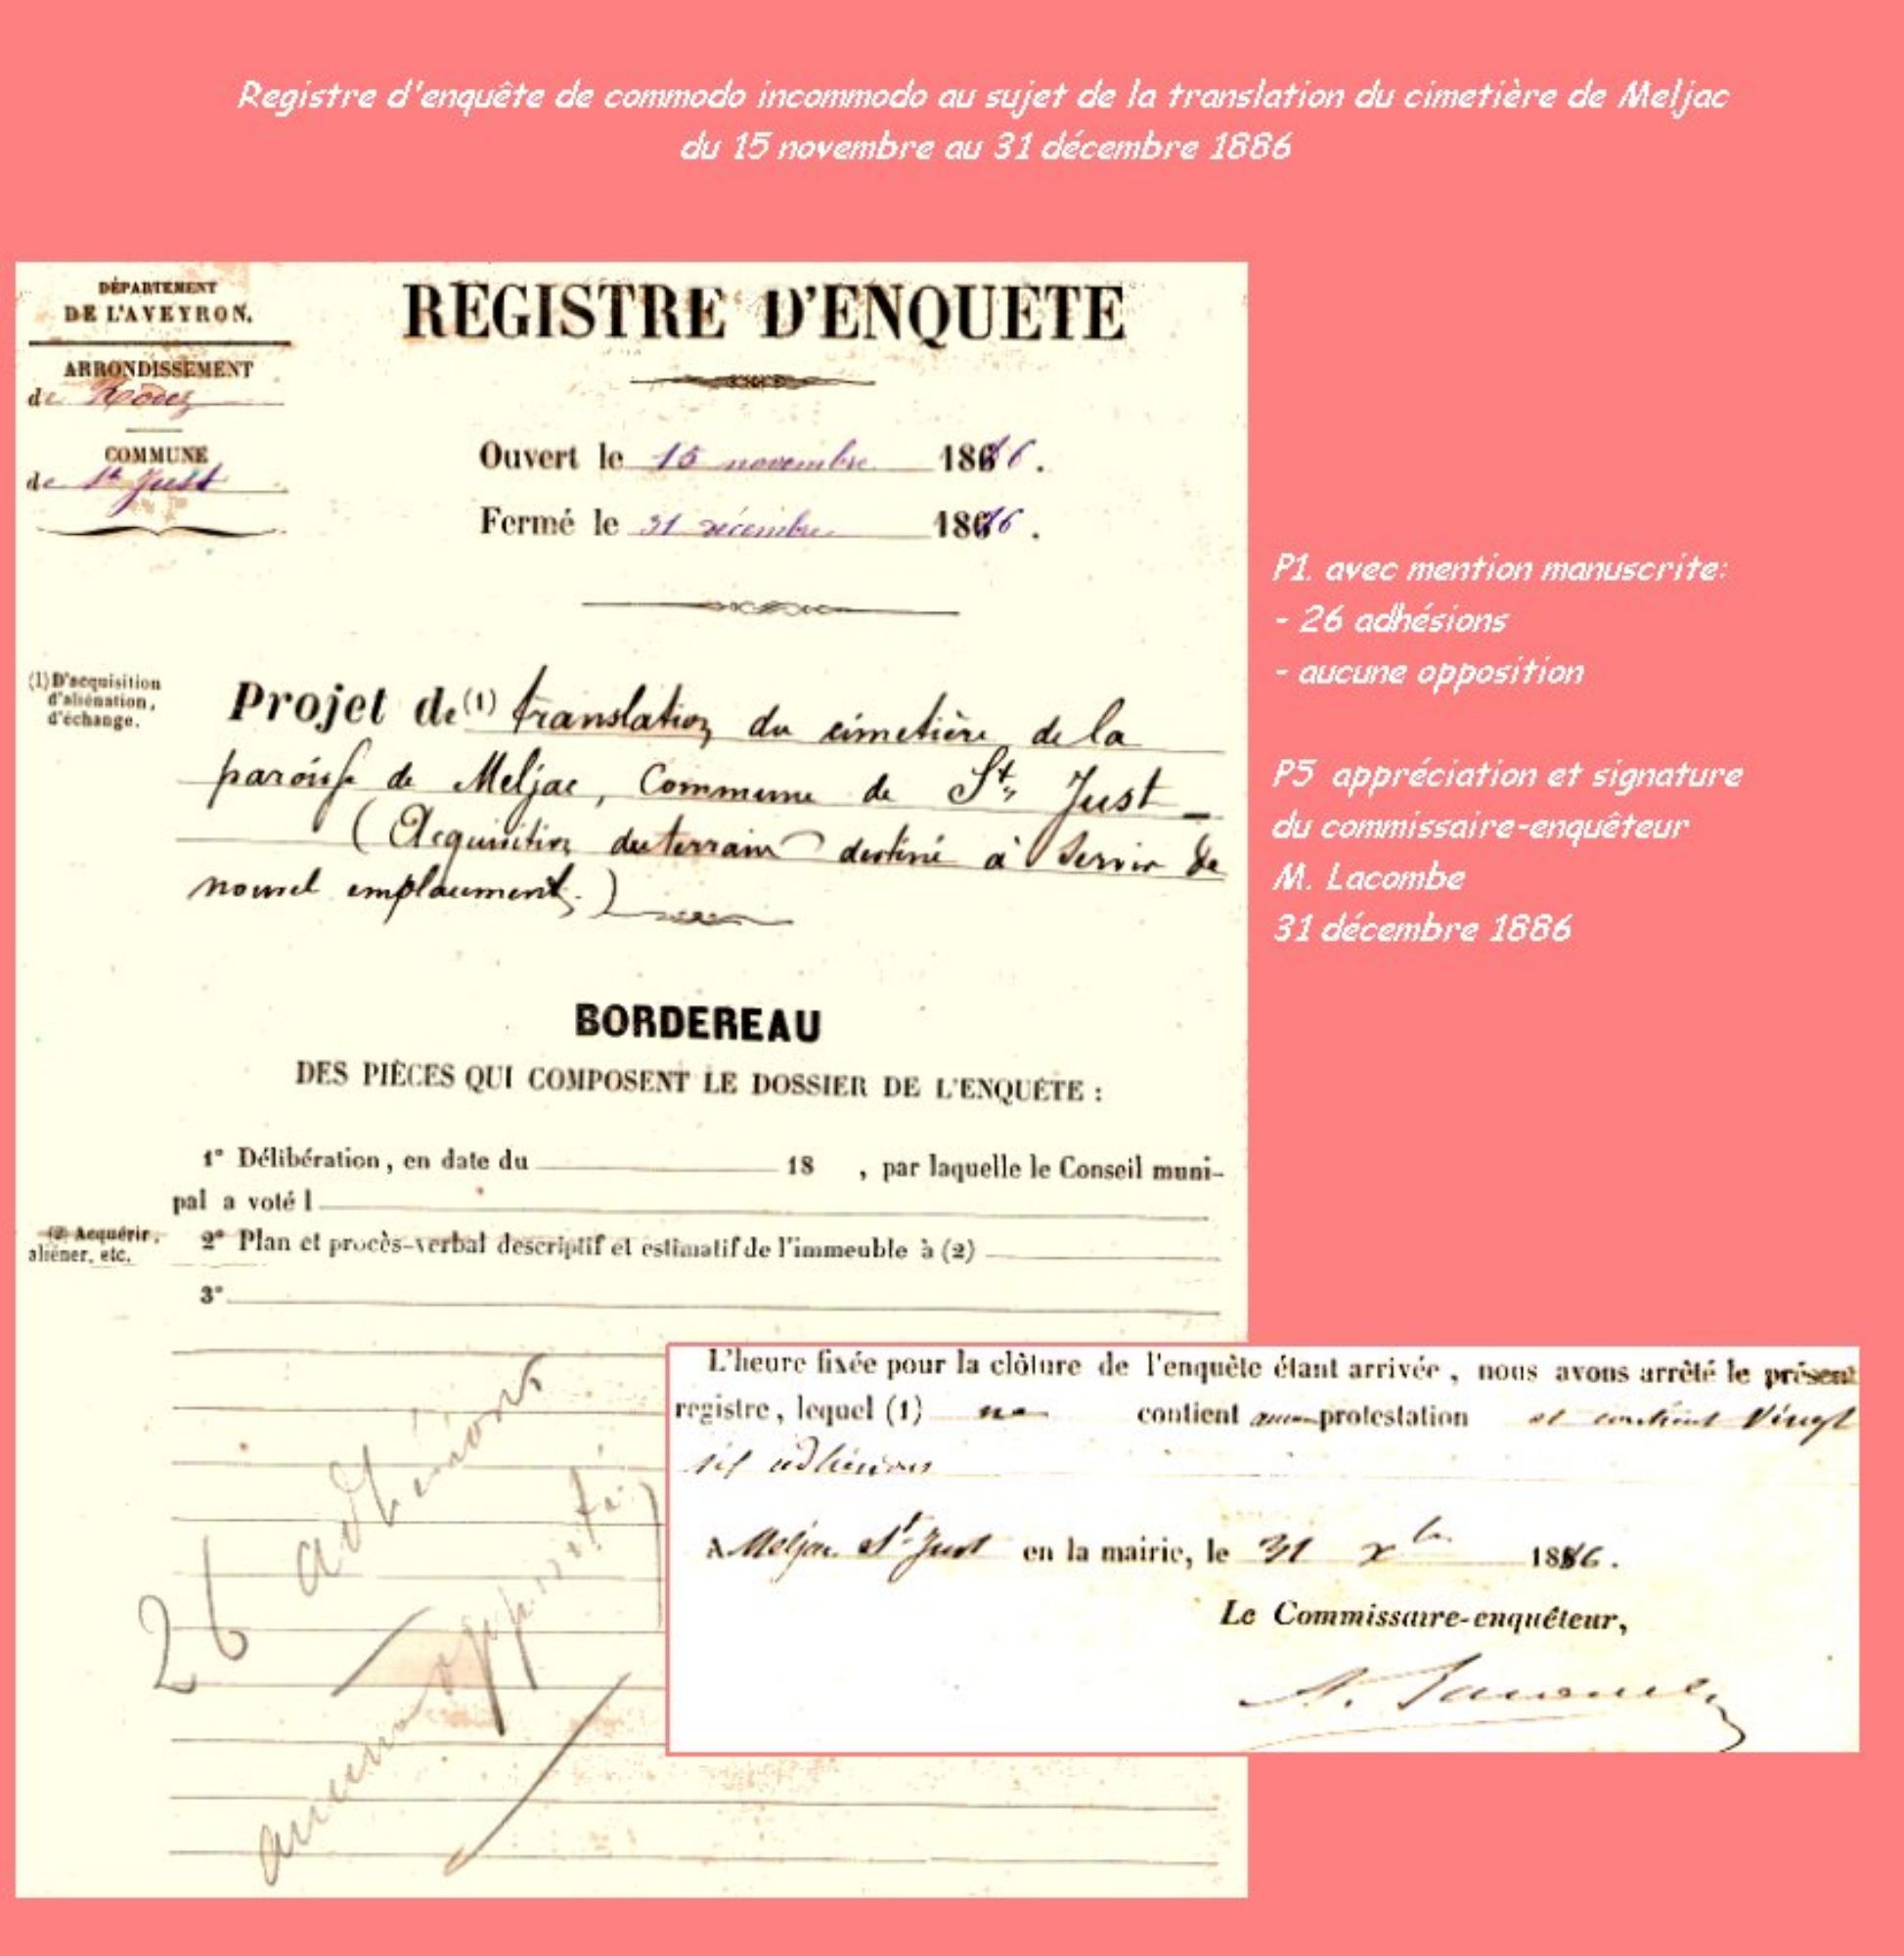 Registre d'enquête de commodo incommodo au sujet de la translation du cimetière de Meljac
du 15 novembre au 31 décembre 1886
DÉPARTEMENT
DE L'AVEYRON.
ARRONDISSEMENT
de Rodez
COMMUNE
de St Just
REGISTRE D'ENQUETE
Ouvert le 15 novembre 1886.
Fermé le 31 décembre 1886.
(1) D'acquisition
d'aliénation,
d'échange.
Projet de (1) translation du cimetière de la
paroisse de Meljac, Commune de St Just
(Acquisition du terrain destiné à servir de
nouvel emplacement.)
P1. avec mention manuscrite:
- 26 adhésions
- aucune opposition
P5 appréciation et signature
du commissaire-enquêteur
M. Lacombe
31 décembre 1886
BORDEREAU
DES PIÈCES QUI COMPOSENT LE DOSSIER DE L'ENQUÊTE :
1° Délibération, en date du 18 , par laquelle le Conseil muni-
pal a voté l
(2) Acquérir,
aliéner, etc.
2° Plan et procès-verbal descriptif et estimatif de l'immeuble à (2)
3°
26 adhésions
aucune
L'heure fixée pour la clôture de l'enquête étant arrivée, nous avons arrêté le présent
registre, lequel (1) ne contient aucune protestation et contient Vingt
six adhésions
A Meljac St Just en la mairie, le 31 Xbre 1886.
Le Commissaire-enquêteur,